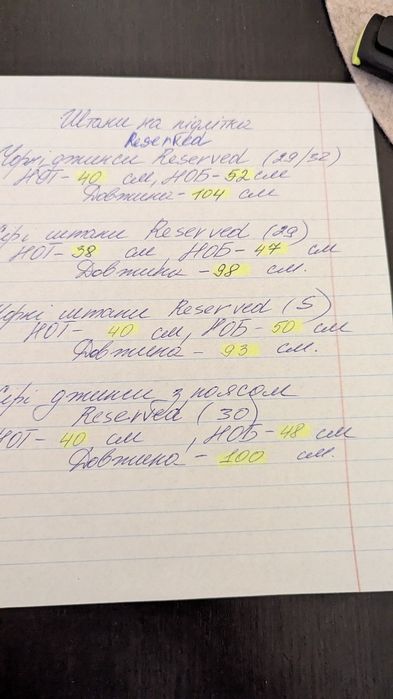 Штани на підлітка
Reserved
Чорні джинси Reserved (29/32)
НОТ- 40 см, НОБ- 52 см
Довжина- 104 см
Сірі штани Reserved (29)
НОТ- 38 см, НОБ- 47 см
Довжина -98 см.
Чорні штани Reserved (S)
НОТ- 40 см, НОБ- 50 см
Довжина - 93 см.
Сірі джинси з поясом
Reserved (30)
НОТ- 40 см, НОБ- 48 см
Довжина - 100 см.